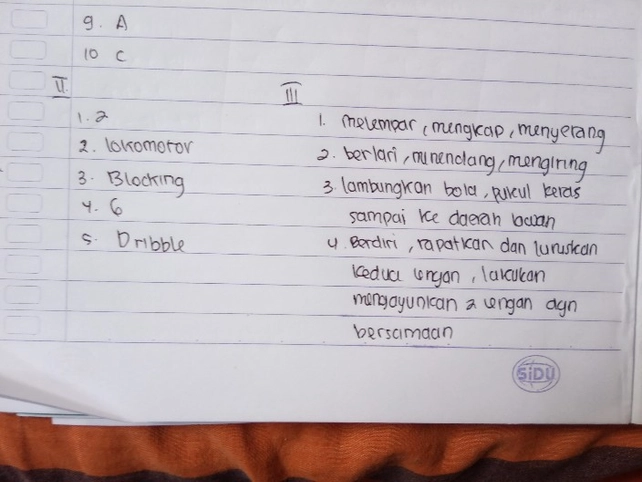 9. A
10 C
II.
1. 2
2. lokomotor
3. Blocking
4. 6
5. Dribble
III
1. melempar, mengkap, menyerang
2. berlari, mnendang, mengiring
3. lambungkan bola, pukul keras
sampai ke daerah lawan
4. Berdiri, rapatkan dan luruskan
kedua lengan, lakukan
mengayunkan 2 lengan dgn
bersamaan
SIDU